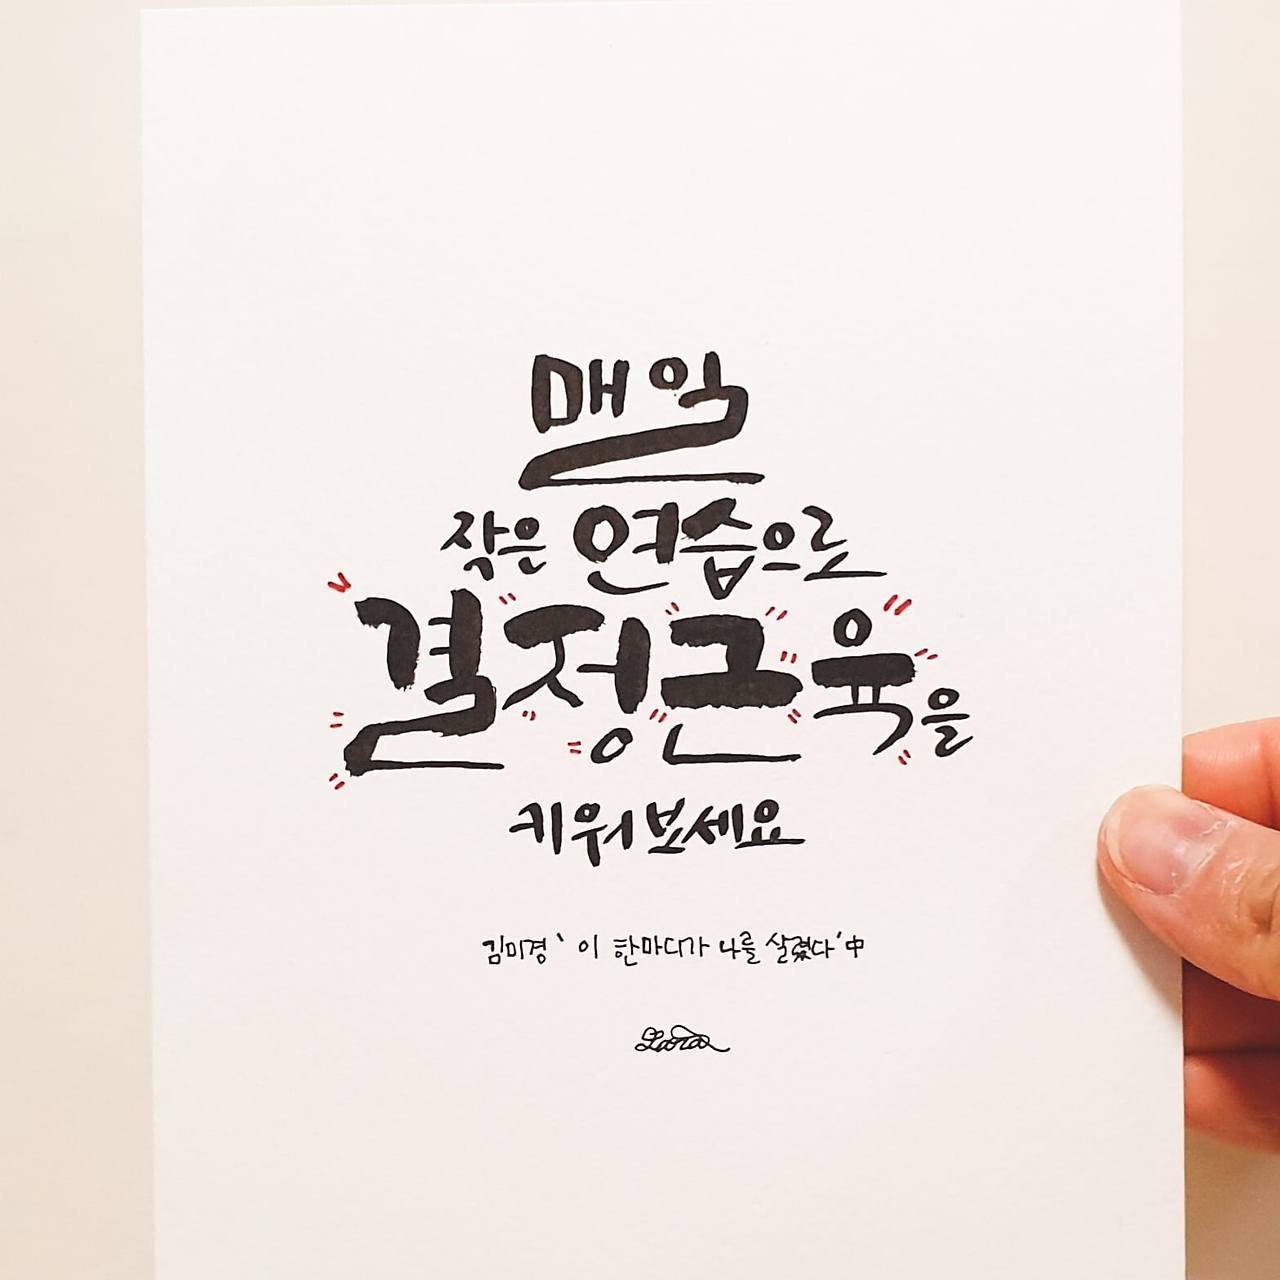 매일
작은 연습으로
결정근육을
키워보세요
김미경 '이 한마디가 나를 살렸다' 中
Lara